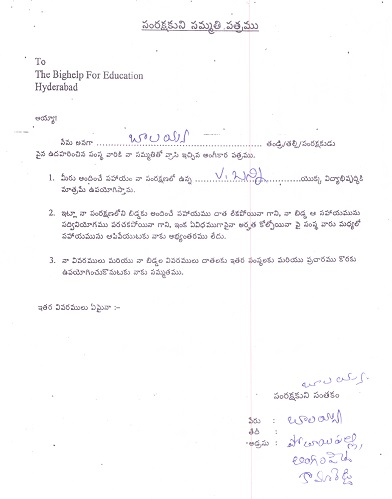 సంరక్షకుని సమ్మతి పత్రము
To
The Bighelp For Education
Hyderabad
అయ్యా!
నేను అనగా ........ బాలయ్య ........ తండ్రి/తల్లి/సంరక్షకుడు
పైన ఉదహరించిన సంస్థ వారికి నా సమ్మతితో వ్రాసి ఇచ్చిన అంగీకార పత్రము.
1. మీరు అందించే సహాయం నా సంరక్షణలో ఉన్న ........ V. ........ యొక్క విద్యాభివృద్ధికి
మాత్రమే ఉపయోగిస్తాను.
2. ఇట్లా నా సంరక్షణలోని బిడ్డకు అందించే సహాయము దాత లేకపోయినా గాని, నా బిడ్డ ఆ సహాయమును
సద్వినియోగము పరచకపోయినా గాని, ఇంక ఏవిధముగానైనా అర్హత కోల్పోయినా పై సంస్థ వారు మధ్యలో
సహాయమును ఆపివేయుటకు నాకు అభ్యంతరము లేదు.
3. నా వివరములు మరియు నా బిడ్డల వివరములు దాతలకు ఇతర సంస్థలకు మరియు ప్రచారము కొరకు
ఉపయోగించుకొనుటకు నాకు సమ్మతము.
ఇతర వివరములు ఏమైనా :-
బాలయ్య
సంరక్షకుని సంతకం
పేరు : బాలయ్య
తేదీ :
అడ్రసు :